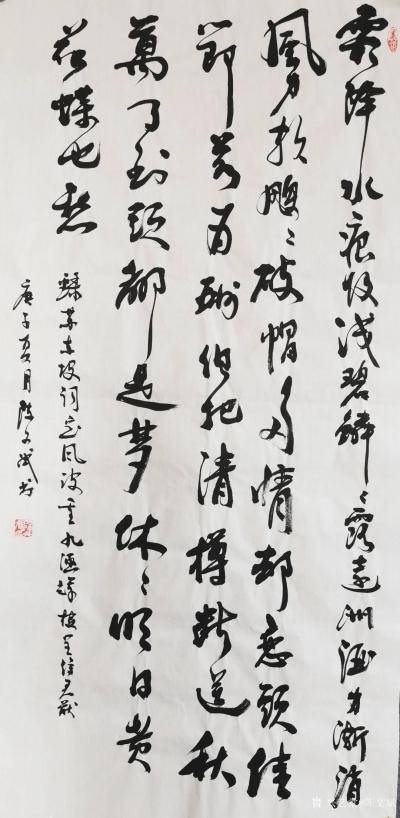 霜降水痕收浅碧鳞々露遠洲酒力渐消
風力软飕々破帽多情却恋頭佳
節若为酬但把清樽断送秋
萬事到頭都是梦休々明日黄
花蝶也愁
録苏东坡词定风波重九涵辉楼呈徐君猷
庚子夏月陈文斌书